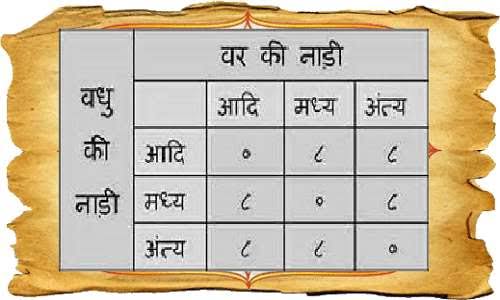 वर की नाड़ी
वधु की नाड़ी
आदि मध्य अंत्य
आदि ० ८ ८
मध्य ८ ० ८
अंत्य ८ ८ ०